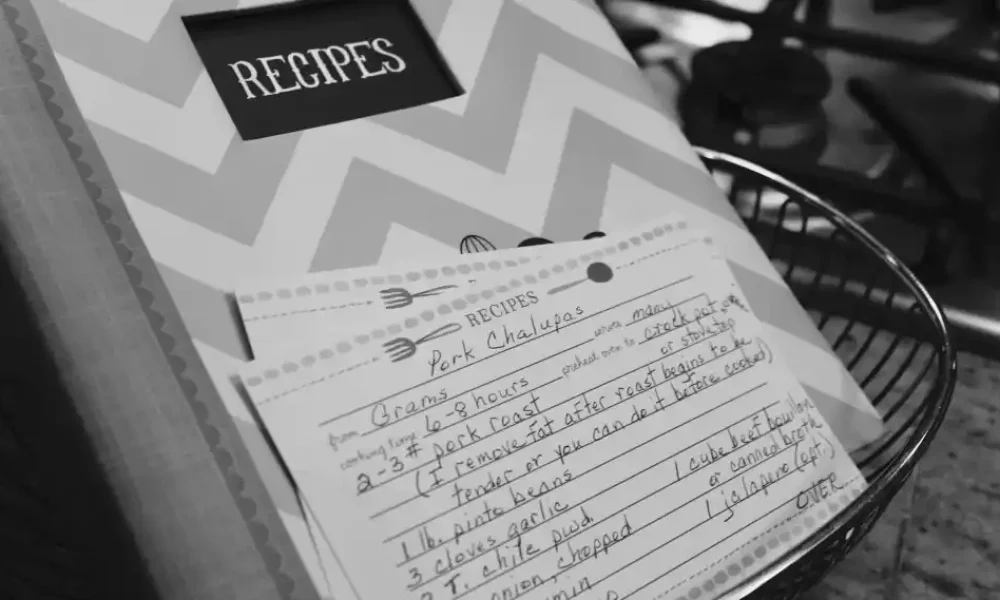 RECIPES
RECIPES
Pork Chalupas
from Grams serves many
cooking time 6-8 hours preheat oven to crock pot
or stovetop
2-3# pork roast
(I remove fat after roast begins to be
tender or you can do it before cooked)
1 lb. pinto beans
3 cloves garlic 1 cube beef bouillon
2 T. chile pwd. or canned broth
onion, chopped 1 jalapeno (opt.)
OVER